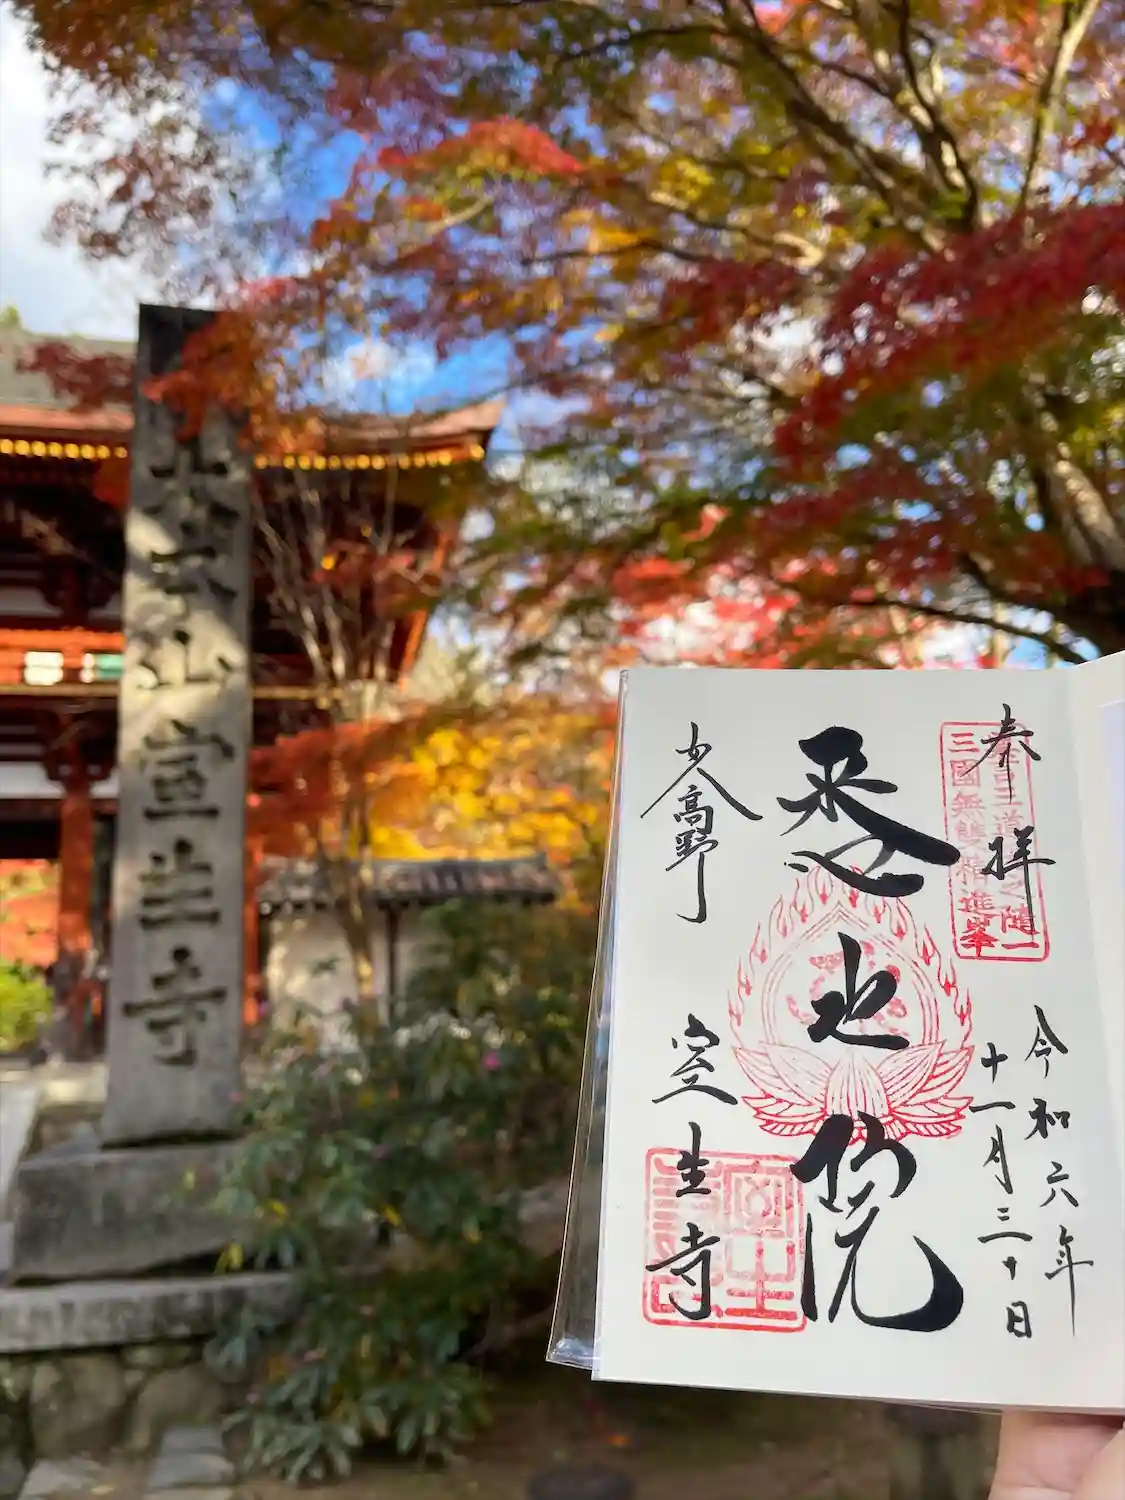 大本山室生寺
奉拝
令和六年
十一月三十日
三國無雙精進峯
悉地院
女人高野
室生寺